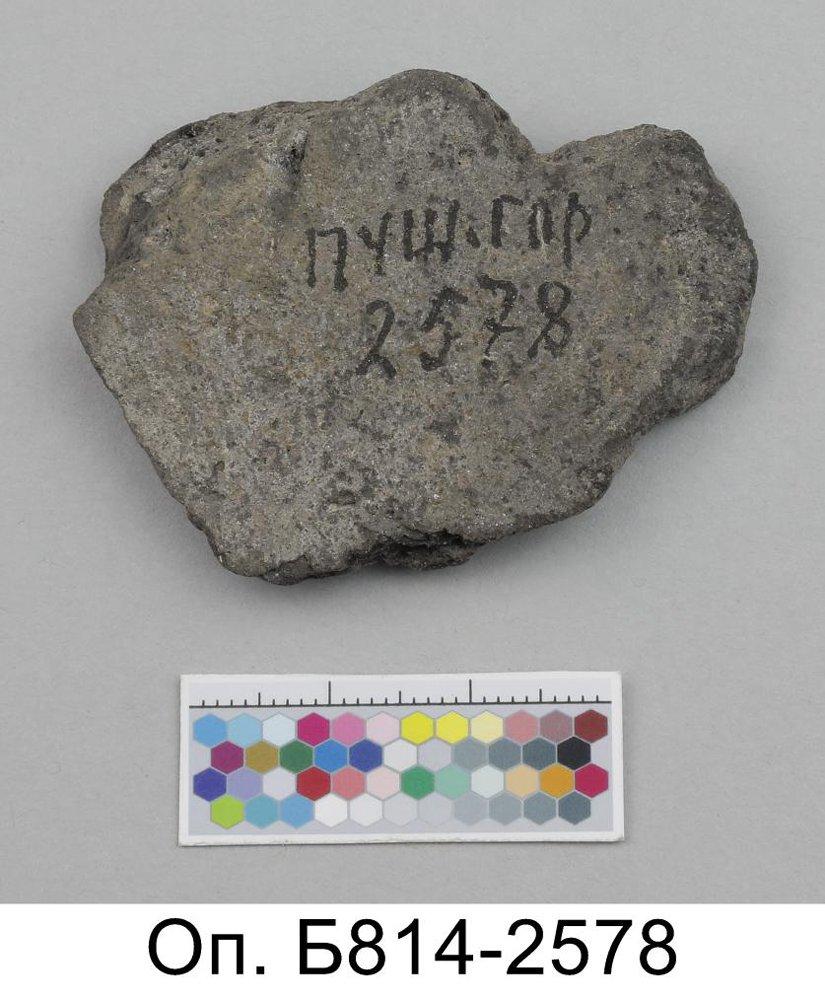 ПУШ.ГОР
2578
Оп. Б814-2578